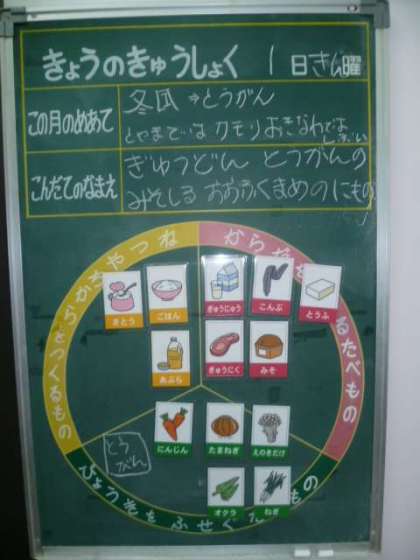 きょうのきゅうしょく 1日きん曜
この月のめあて
冬瓜⇒とうがん
とやまでは カモリ おきなわでは
しぶい
こんだてのなまえ
ぎゅうどん とうがんの
みそしる おおふくまめのにもの
ちからやねつ
からだを
をつくるもの
るたべもの
さとう
ごはん
ぎゅうにゅう
こんぶ
とうふ
あぶら
ぎゅうにく
みそ
とう
がん
にんじん
たまねぎ
えのきだけ
オクラ
ねぎ
びょうきをふせぐ
もの